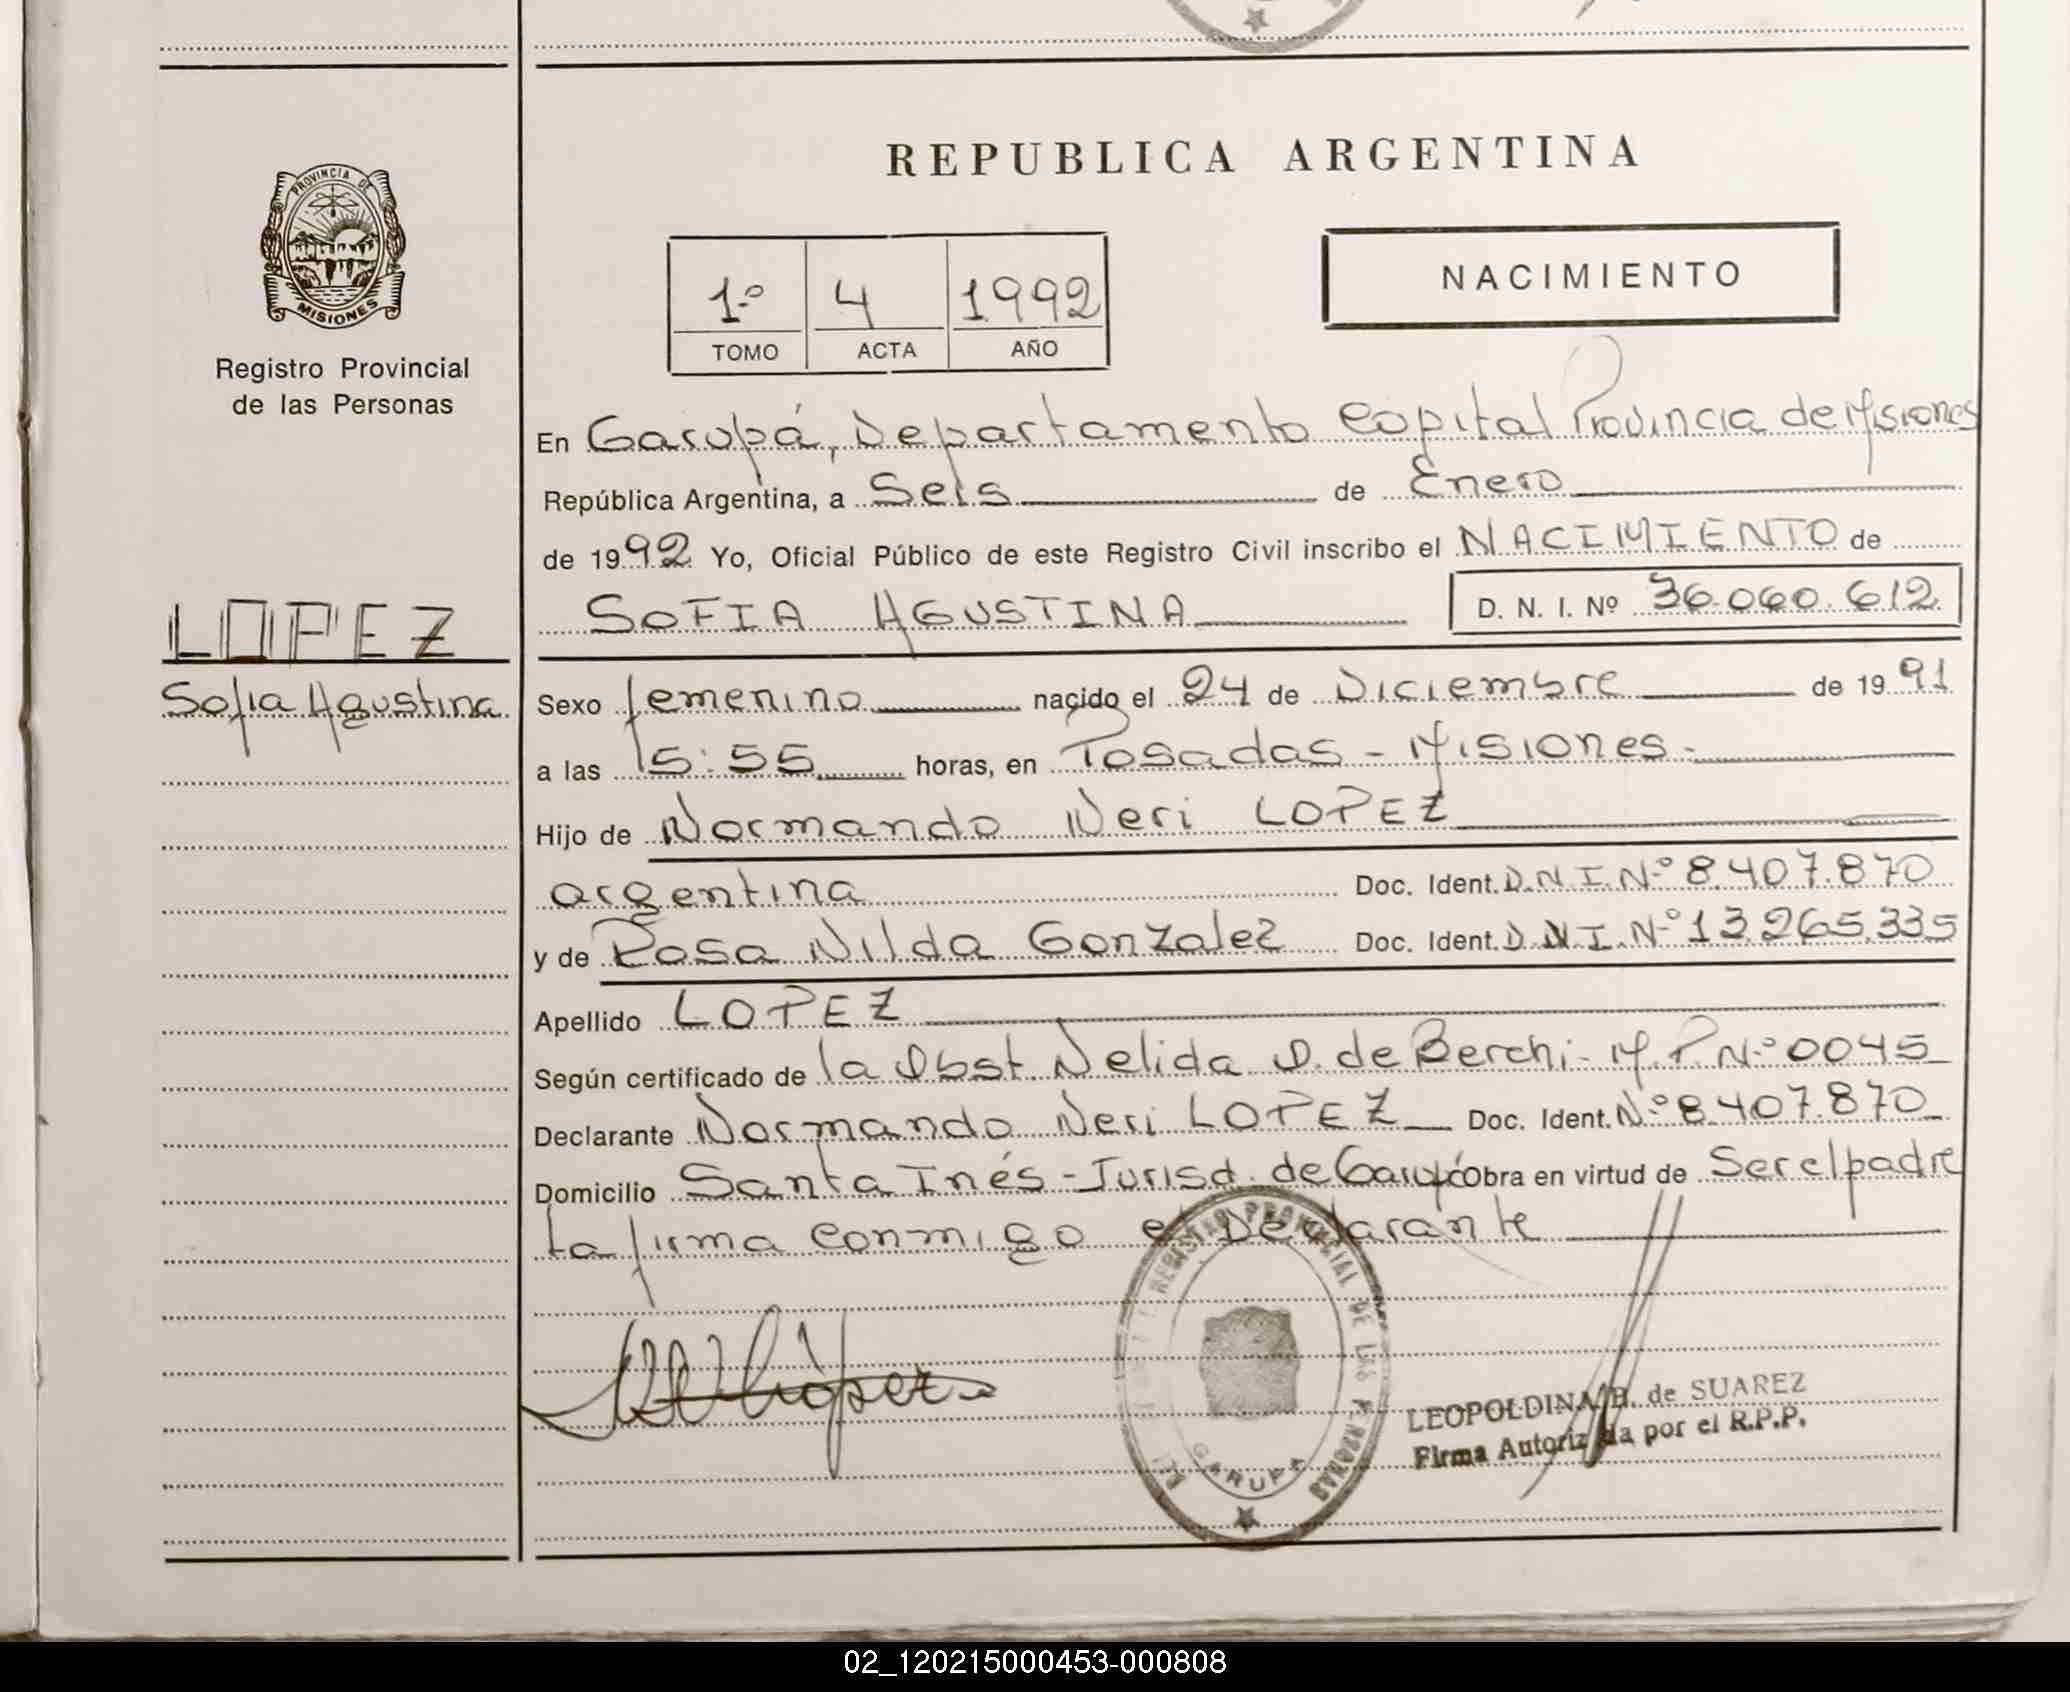 REPUBLICA ARGENTINA
PROVINCIA DE
MISIONES
Registro Provincial
de las Personas
1º 4 1992
TOMO ACTA AÑO
NACIMIENTO
En Garupá, Departamento Capital Provincia de Misiones
República Argentina, a Seis de Enero
de 1992 Yo, Oficial Público de este Registro Civil inscribo el NACIMIENTO de
SOFIA AGUSTINA D. N. I. Nº 36.060.612
LOPEZ
Sofia Agustina
Sexo femenino nacido el 24 de Diciembre de 1991
a las 15:55 horas, en Posadas - Misiones.
Hijo de Normando Neri LOPEZ
argentina Doc. Ident. D.N.I.Nº 8.407.870
y de Rosa Nilda Gonzalez Doc. Ident. D.N.I.Nº 13.265.335
Apellido LOPEZ
Según certificado de la Obst. Nelida D. de Berchi - M.P.Nº 0045
Declarante Normando Neri LOPEZ Doc. Ident. Nº 8.407.870
Domicilio Santa Inés - Jurisd. de Garupá Obra en virtud de Ser el padre
La firma conmigo el Declarante
REGISTRO PROVINCIAL DE LAS PERSONAS
GARUPA
López
LEOPOLDINA B. de SUAREZ
Firma Autorizada por el R.P.P.
02_120215000453-000808